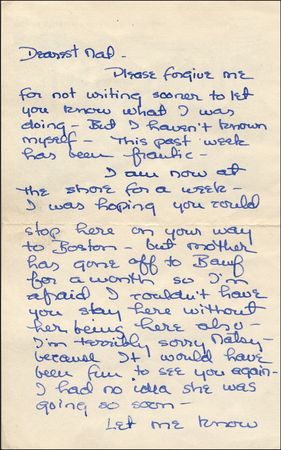 Dearest Nat -
Please forgive me
for not writing sooner to let
you know what I was
doing - But I haven't known
myself - This past week
has been frantic -
I am now at
the shore for a week -
I was hoping you could
stop here on your way
to Boston - but mother
has gone off to Banf
for a month so I'm
afraid I couldn't have
you stay here without
her being here also -
I'm terribly sorry Natsy -
because It would have
been fun to see you again -
I had no idea she was
going so soon -
Let me know